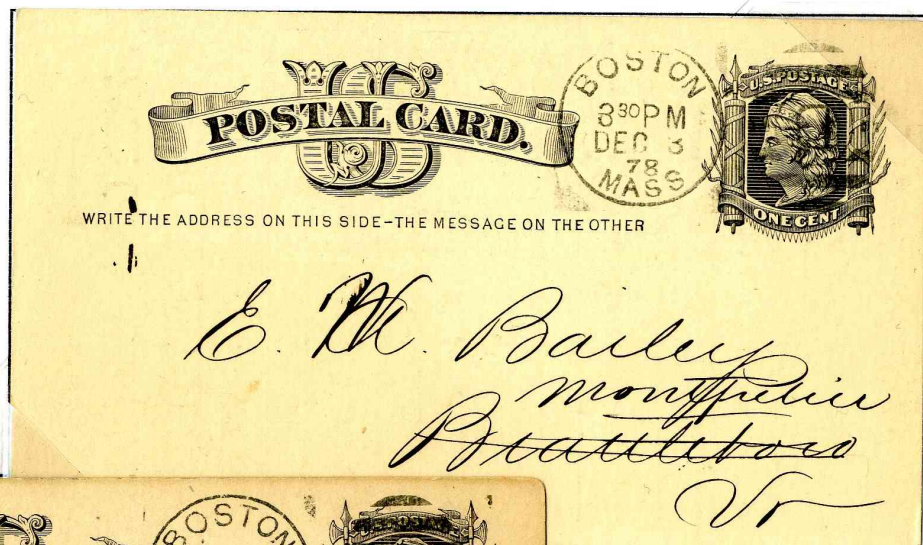 US
POSTAL CARD.
BOSTON
3 30 PM
DEC 3
78
MASS
U.S. POSTAGE
ONE CENT
WRITE THE ADDRESS ON THIS SIDE-THE MESSAGE ON THE OTHER
E. W. Bailey
Montpelier
Brattleboro
Vt
BOSTON